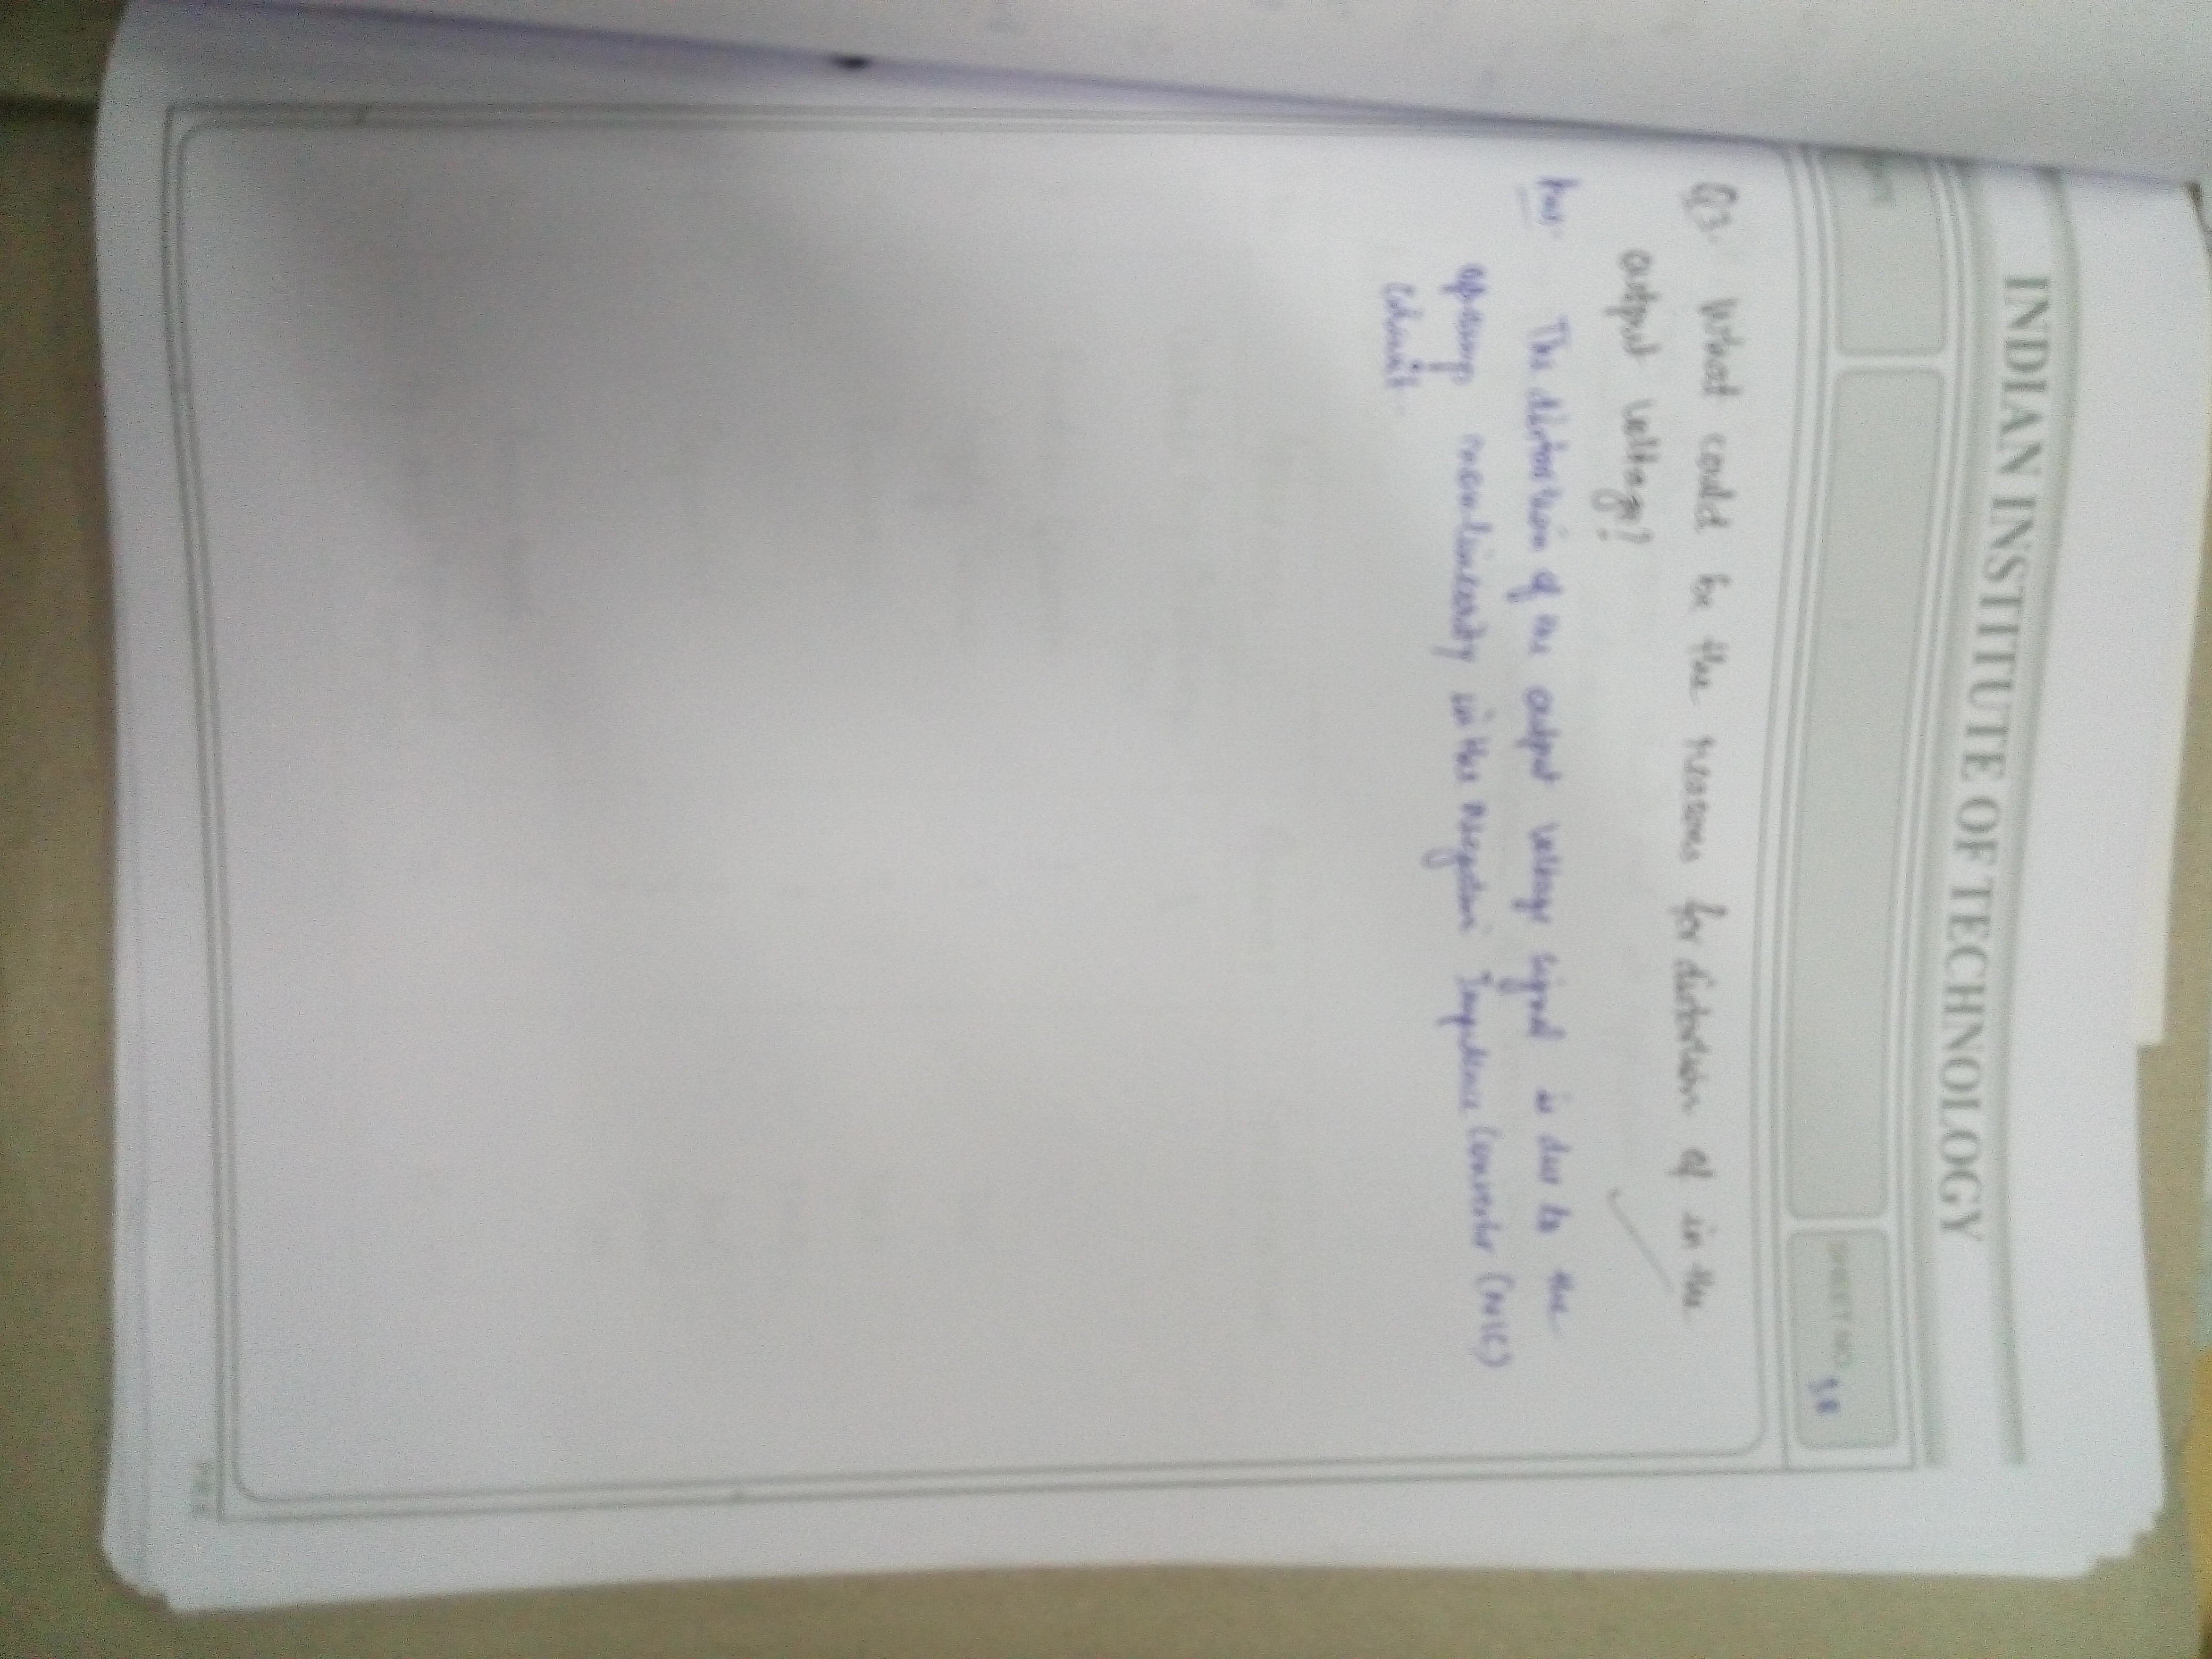 INDIAN INSTITUTE OF TECHNOLOGY
DATE
SHEET NO.
Q3. What could be the reasons for distortion of in the
output voltage?
Ans. The distortion of the output voltage signal is due to the
opamp non-linearity in the Negative Impedence Converter (NIC)
Circuit.